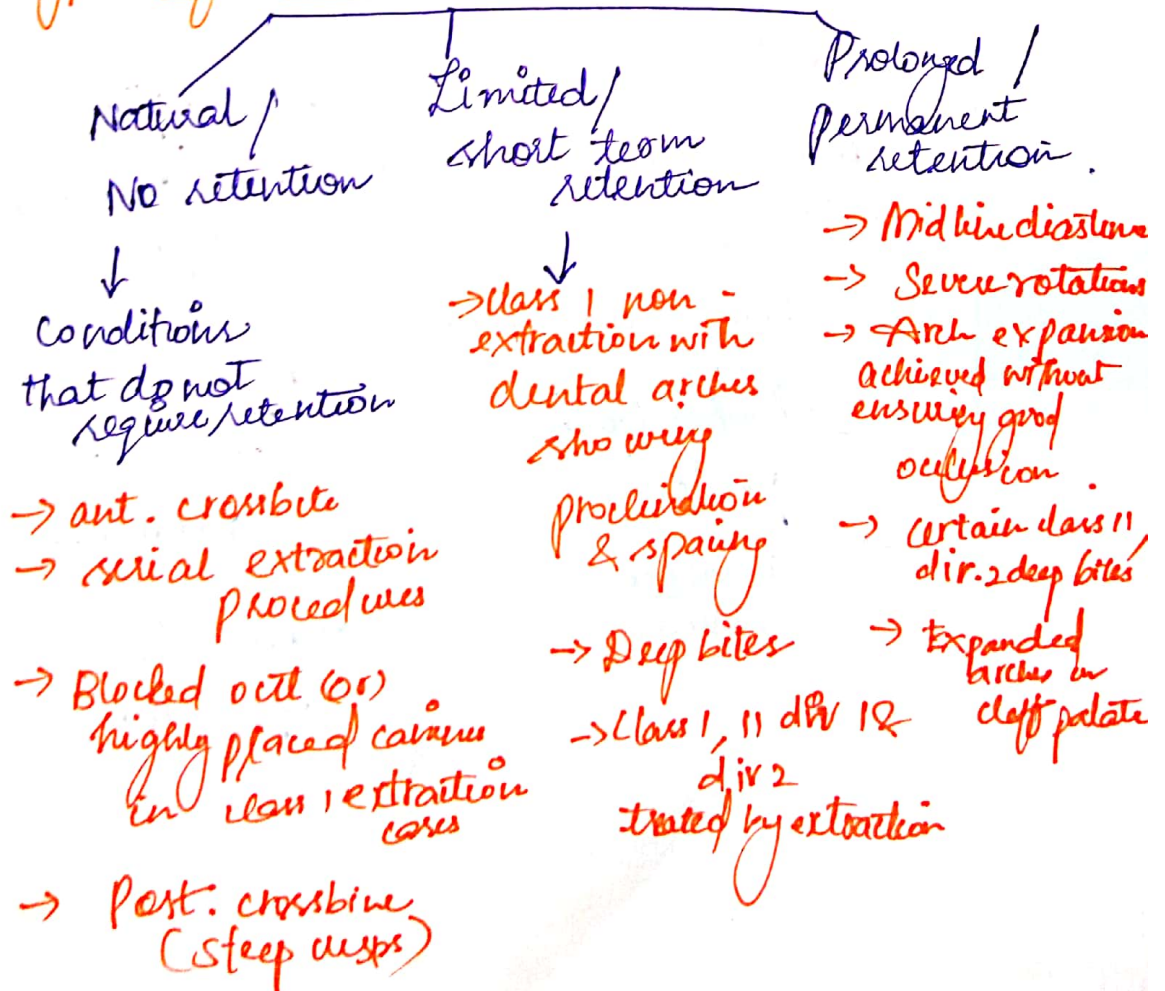 Natural/
No retention
↓
Conditions
that do not
require retention
→ ant. crossbite
→ serial extraction
procedures
→ Blocked out (or)
highly placed canines
in class 1 extraction
cases
→ Post. crossbine
(steep cusps)
Limited/
short term
retention
↓
→ class 1 non -
extraction with
dental arches
showing
proclination
& spacing
→ Deep bites
→ Class 1, 11 div 1 &
div 2
treated by extraction
Prolonged /
permanent
retention.
→ Midline diastema
→ Severe rotations
→ Arch expansion
achieved without
ensuring good
occlusion.
→ certain class 11,
div. 2 deep bites
→ Expanded
arches in
cleft palate